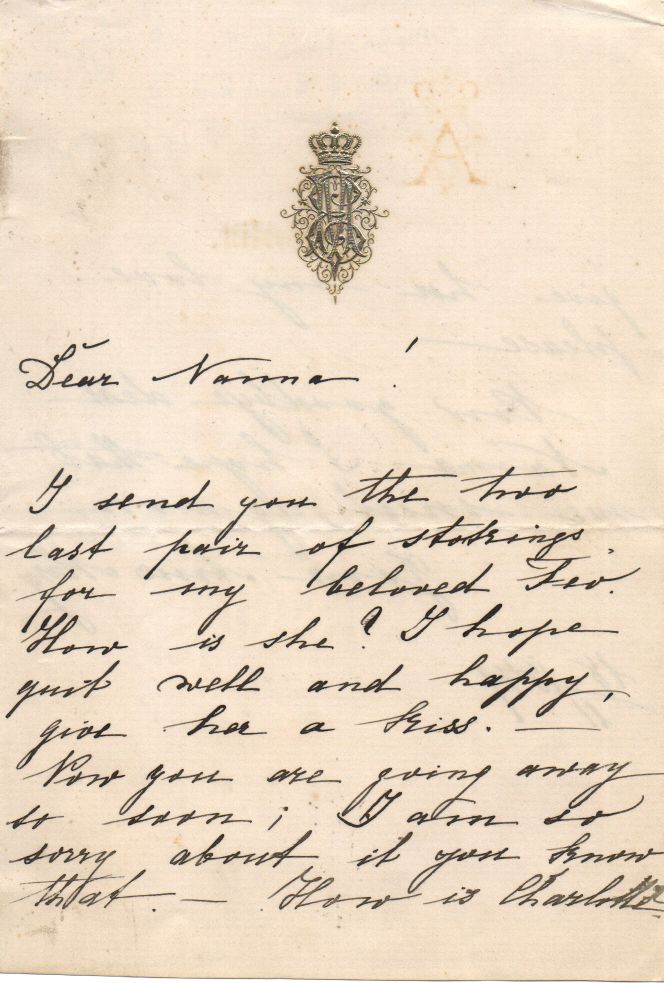 Dear Nanna!
I send you the two
last pair of stokings
for my beloved Feo.
How is she? I hope
quit well and happy,
give her a kiss. —
Now you are going away
so soon; I am so
sorry about it you know
that. — How is Charlotte